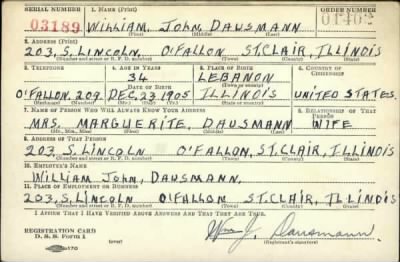 SERIAL NUMBER 1. NAME (Print) ORDER NUMBER
03189 WILLIAM, JOHN, DAUSMANN 01402
(First) (Middle) (Last)
2. ADDRESS (Print)
203, S, LINCOLN, O'FALLON ST. CLAIR, ILLINOIS
(Number and street or R. F. D. number) (Town) (County) (State)
3. TELEPHONE 4. AGE IN YEARS 5. PLACE OF BIRTH 6. COUNTRY OF CITIZENSHIP
34 LEBANON
DATE OF BIRTH (Town or county)
O'FALLON. 209. DEC, 23, 1905 ILLINOIS UNITED STATES.
(Exchange) (Number) (Mo.) (Day) (Yr.) (State or country)
7. NAME OF PERSON WHO WILL ALWAYS KNOW YOUR ADDRESS 8. RELATIONSHIP OF THAT PERSON
MRS, MARGUERITE, DAUSMANN WIFE
(Mr., Mrs., Miss) (First) (Middle) (Last)
9. ADDRESS OF THAT PERSON
203, S, LINCOLN O'FALLON, ST, CLAIR, ILLINOIS
(Number and street or R. F. D. number) (Town) (County) (State)
10. EMPLOYER'S NAME
WILLIAM JOHN, DAUSMANN,
11. PLACE OF EMPLOYMENT OR BUSINESS
203, S, LINCOLN O'FALLON ST, CLAIR, ILLINOIS
(Number and street or R. F. D. number) (Town) (County) (State)
I AFFIRM THAT I HAVE VERIFIED ABOVE ANSWERS AND THAT THEY ARE TRUE.
REGISTRATION CARD
D. S. S. Form 1 Wm J. Dausmann
(Registrant's signature)